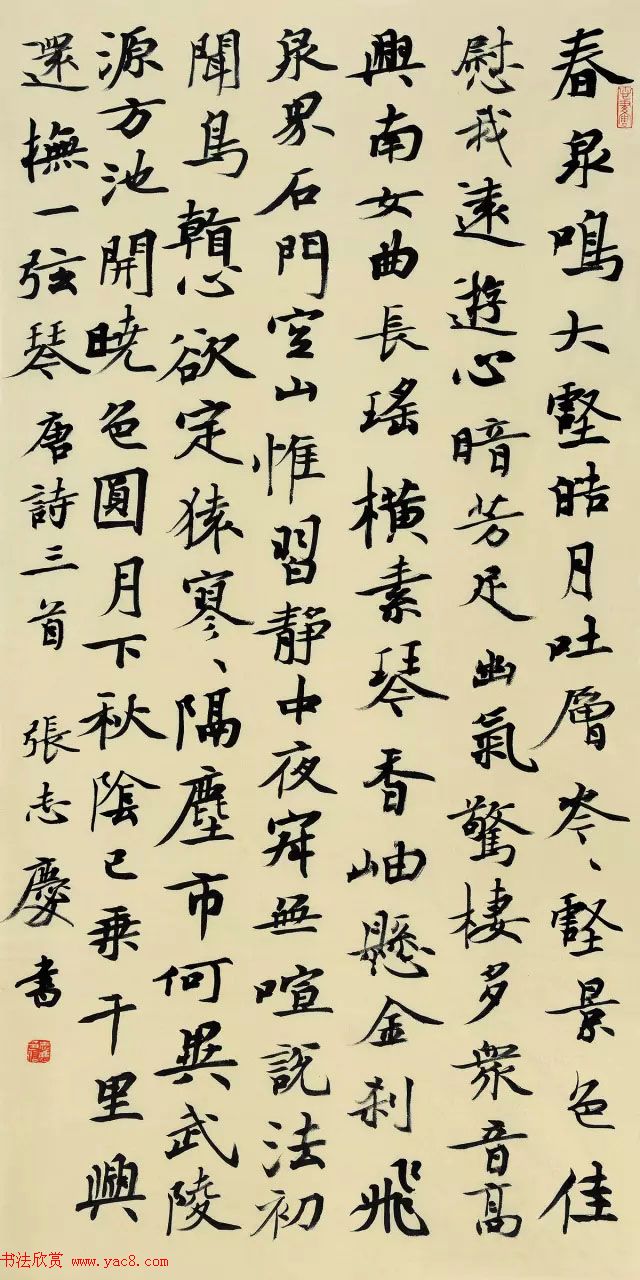 春泉鳴大壑皓月吐層岑岑壑景色佳
慰我遠遊心暗芳足幽氣驚棲多衆音高
興南女曲長瑤橫素琴香岫懸金刹飛
泉界石門空山惟習靜中夜寂無喧説法初
聞鳥看心欲定猿寥寥隔塵市何異武陵
源方池開曉色圓月下秋陰已乗千里興
還撫一弦琴唐詩三首張志慶書
书法欣赏 www.yac8.com